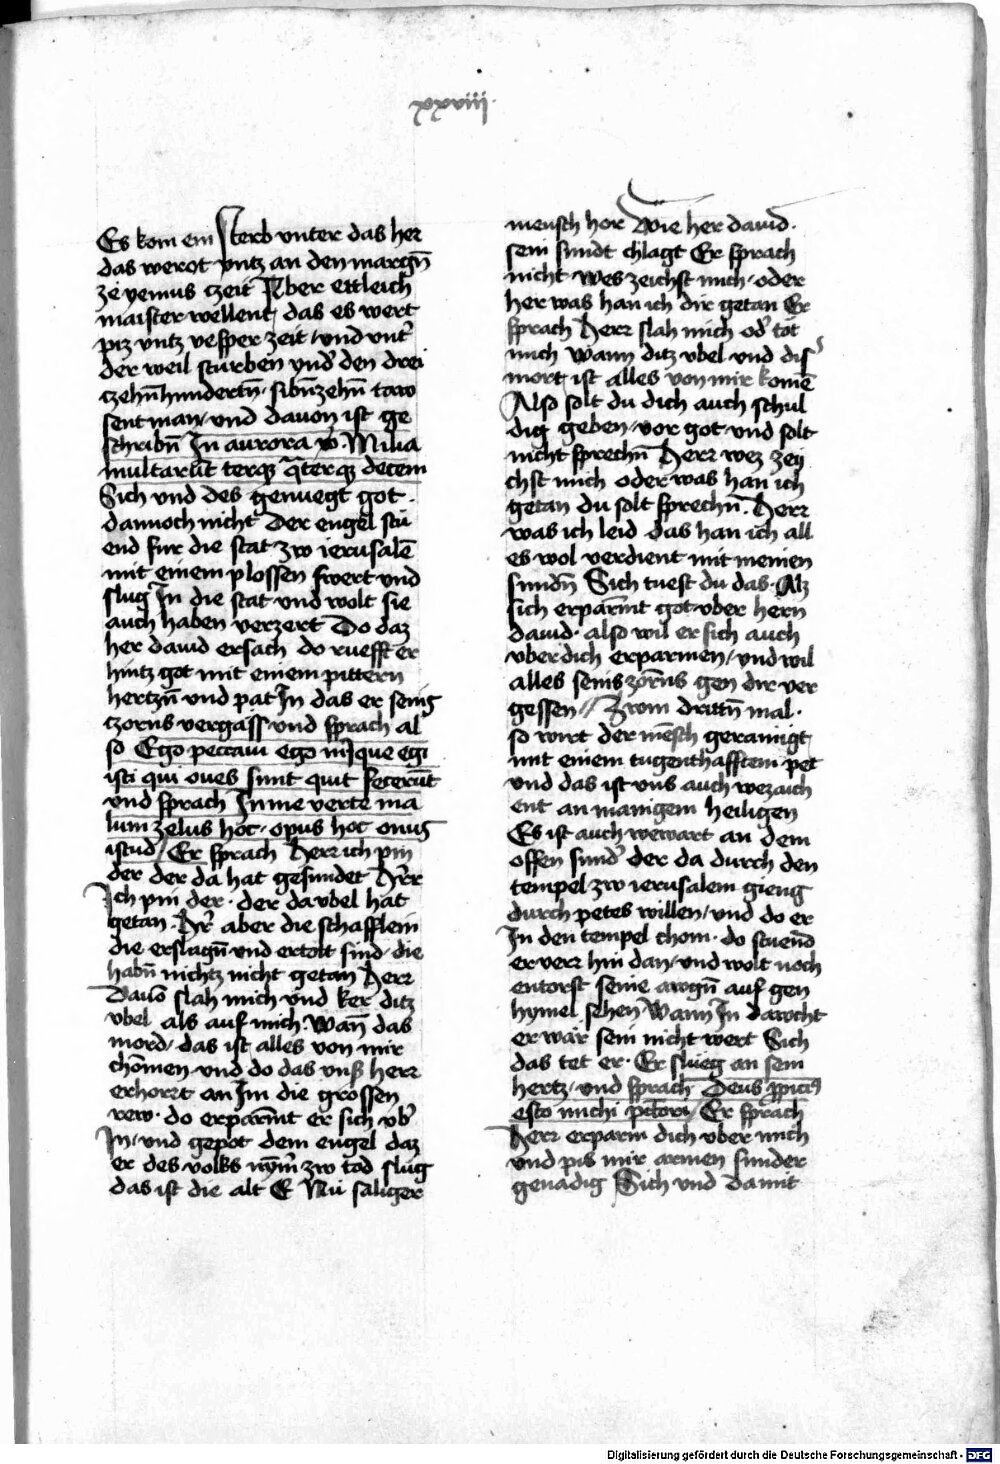 xxviii
Es kom ein sterb vnter das her
das werot vntz an den margñ
ze yemus czeit Aber ettleich
maister wellent, das es wert
piz vntz vesper zeit / vnd vnt̉
der weil sturben vnd̉ den drei
czehñhundertñ · sibñzehñ taw
sent man / vnd dauon ist ge
schribñ In aurora v̉ · Milia
multarūt terqꝫ q̄terqꝫ decem
Sich vnd des genuegt got ·
dannoch nicht Der engel stu
end fur die stat zw ierusalē
mit einem plossen swert vnd
slug In die stat vnd wolt sie
auch haben verzert Do daz
her dauid ersach do ruefft er
hintz got mit einem pittern
hertzñ vnd pat In das er seins
czorns vergass vnd sprach al
so Ego peccaui ego inique egi
isti qui oues sunt quit fecerūt
vnd sprach In me verte ma
lum zelus hoc · opus hoc onus
istud / Er sprach Herr ich pin
der der da hat gesundet Hr̄r
Ich pin der · der da vbel hat
getan · Hr̄ aber die schafflein
die erslagñ vnd ertott sind · die
habñ nichtz nicht getan Herr
Dauō slah mich vnd ker ditz
vbel als auf mich · Wañ das
mord / das ist alles von mir
chōmen vnd do das vnß herr
erhorrt an Im die grossen
rew · do erparm̄t er sich vb̉
In / vnd gepot dem engel daz
er des volks nȳm̉ zw tod slug
das ist die alt E Nu saliger
mensch hor Wie her dauid ·
sein sundt chlagt Er sprach
nicht · wes zeichst mich · oder
her was han ich dir getan Er
sprach Herr slah mich od̉ tot
mich Wann ditz vbel vnd dis
mort ist alles von mir komē
Also solt du dich auch schul
dig geben / vor got vnd solt
nicht sprechñ Herr wez zey
chst mich oder was han ich
getan du solt sprechñ · Herr
was ich leid das han ich all
es wol verdient mit meinen
sundñ Sich tuest du das · Alz
sich erparm̄t got vber hern
dauid · also wil er sich auch
vber dich erparmen / vnd wil
alles seins zorñs gen dir ver
gessen // Zwm drittñ mal ·
so wirt der mēsch gerainigt
mit einem tugenthafftem pet
vnd das ist vns auch wezaich
ent an manigem heiligen
Es ist auch wewart an dem
offen sund̉ der da durch den
tempel zw ierusalem gieng
durch petes willen / vnd do er
In den tempel chom · do stuend
er verr hin dan / vnd wolt noch
entorst seine awgñ auf gen
hymel sehen Wann In dawcht
er wär sein nicht wert Sich
das tet er · Er slueg an sein
hertz / vnd sprach Deus ꝓpiciꝰ
esto michi pctori / Er sprach
Herr erparm dich vber mich
vnd pis mir armen sunder
genadig Sich vnd damit
Digitalisierung gefördert durch die Deutsche Forschungsgemeinschaft - DFG